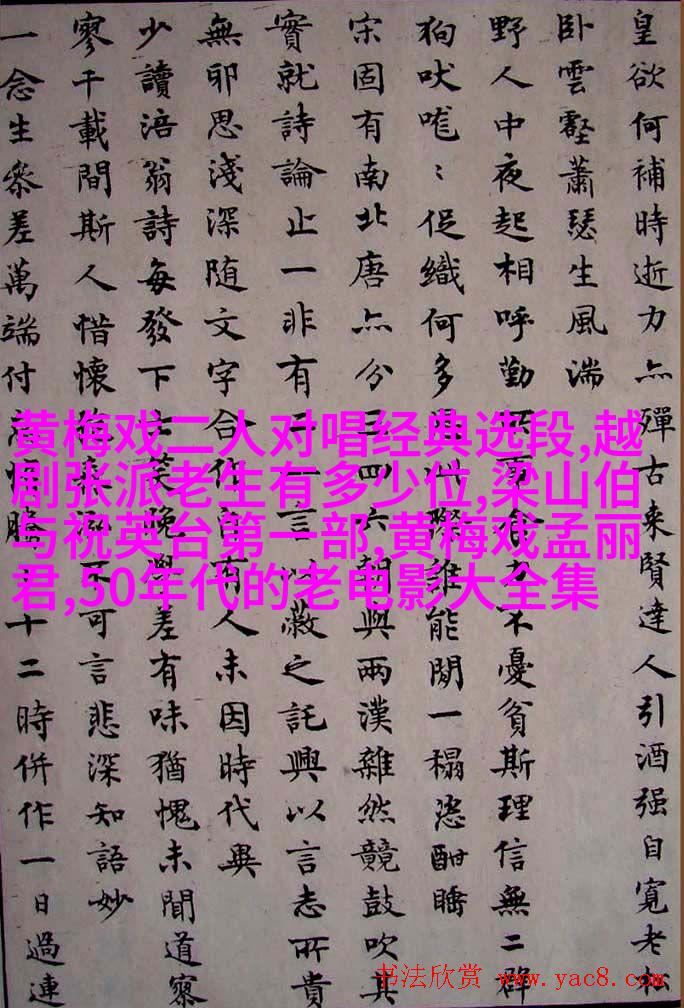 皇欲何補時逝力亦殫古來賢達人引酒强自寬老
卧雲壑蕭瑟生風湍
野人中夜起相呼勤不憂貧斯理信無二群
狗吠嘊〻促織何多誰能閙一榻恣酣睡
宋固有南北唐亦分三四六朝與兩漢雜然競鼓吹其
實就詩論止一非有二一言以蔽之託興以言志所貴
無邪思淺深随文字合作自有人未因時代異
少讀涪翁詩每發下士笑晚學差有味猶愧未聞道寥
寥千載間斯人惜懷不可言悲深知語妙
一念生參差萬端付十二時併作一日過連
黄梅戏二人对唱经典选段,越
剧张派老生有多少位,梁山伯
与祝英台第一部,黄梅戏孟丽
君,50年代的老电影大全集
书法欣赏 www.yac8.com